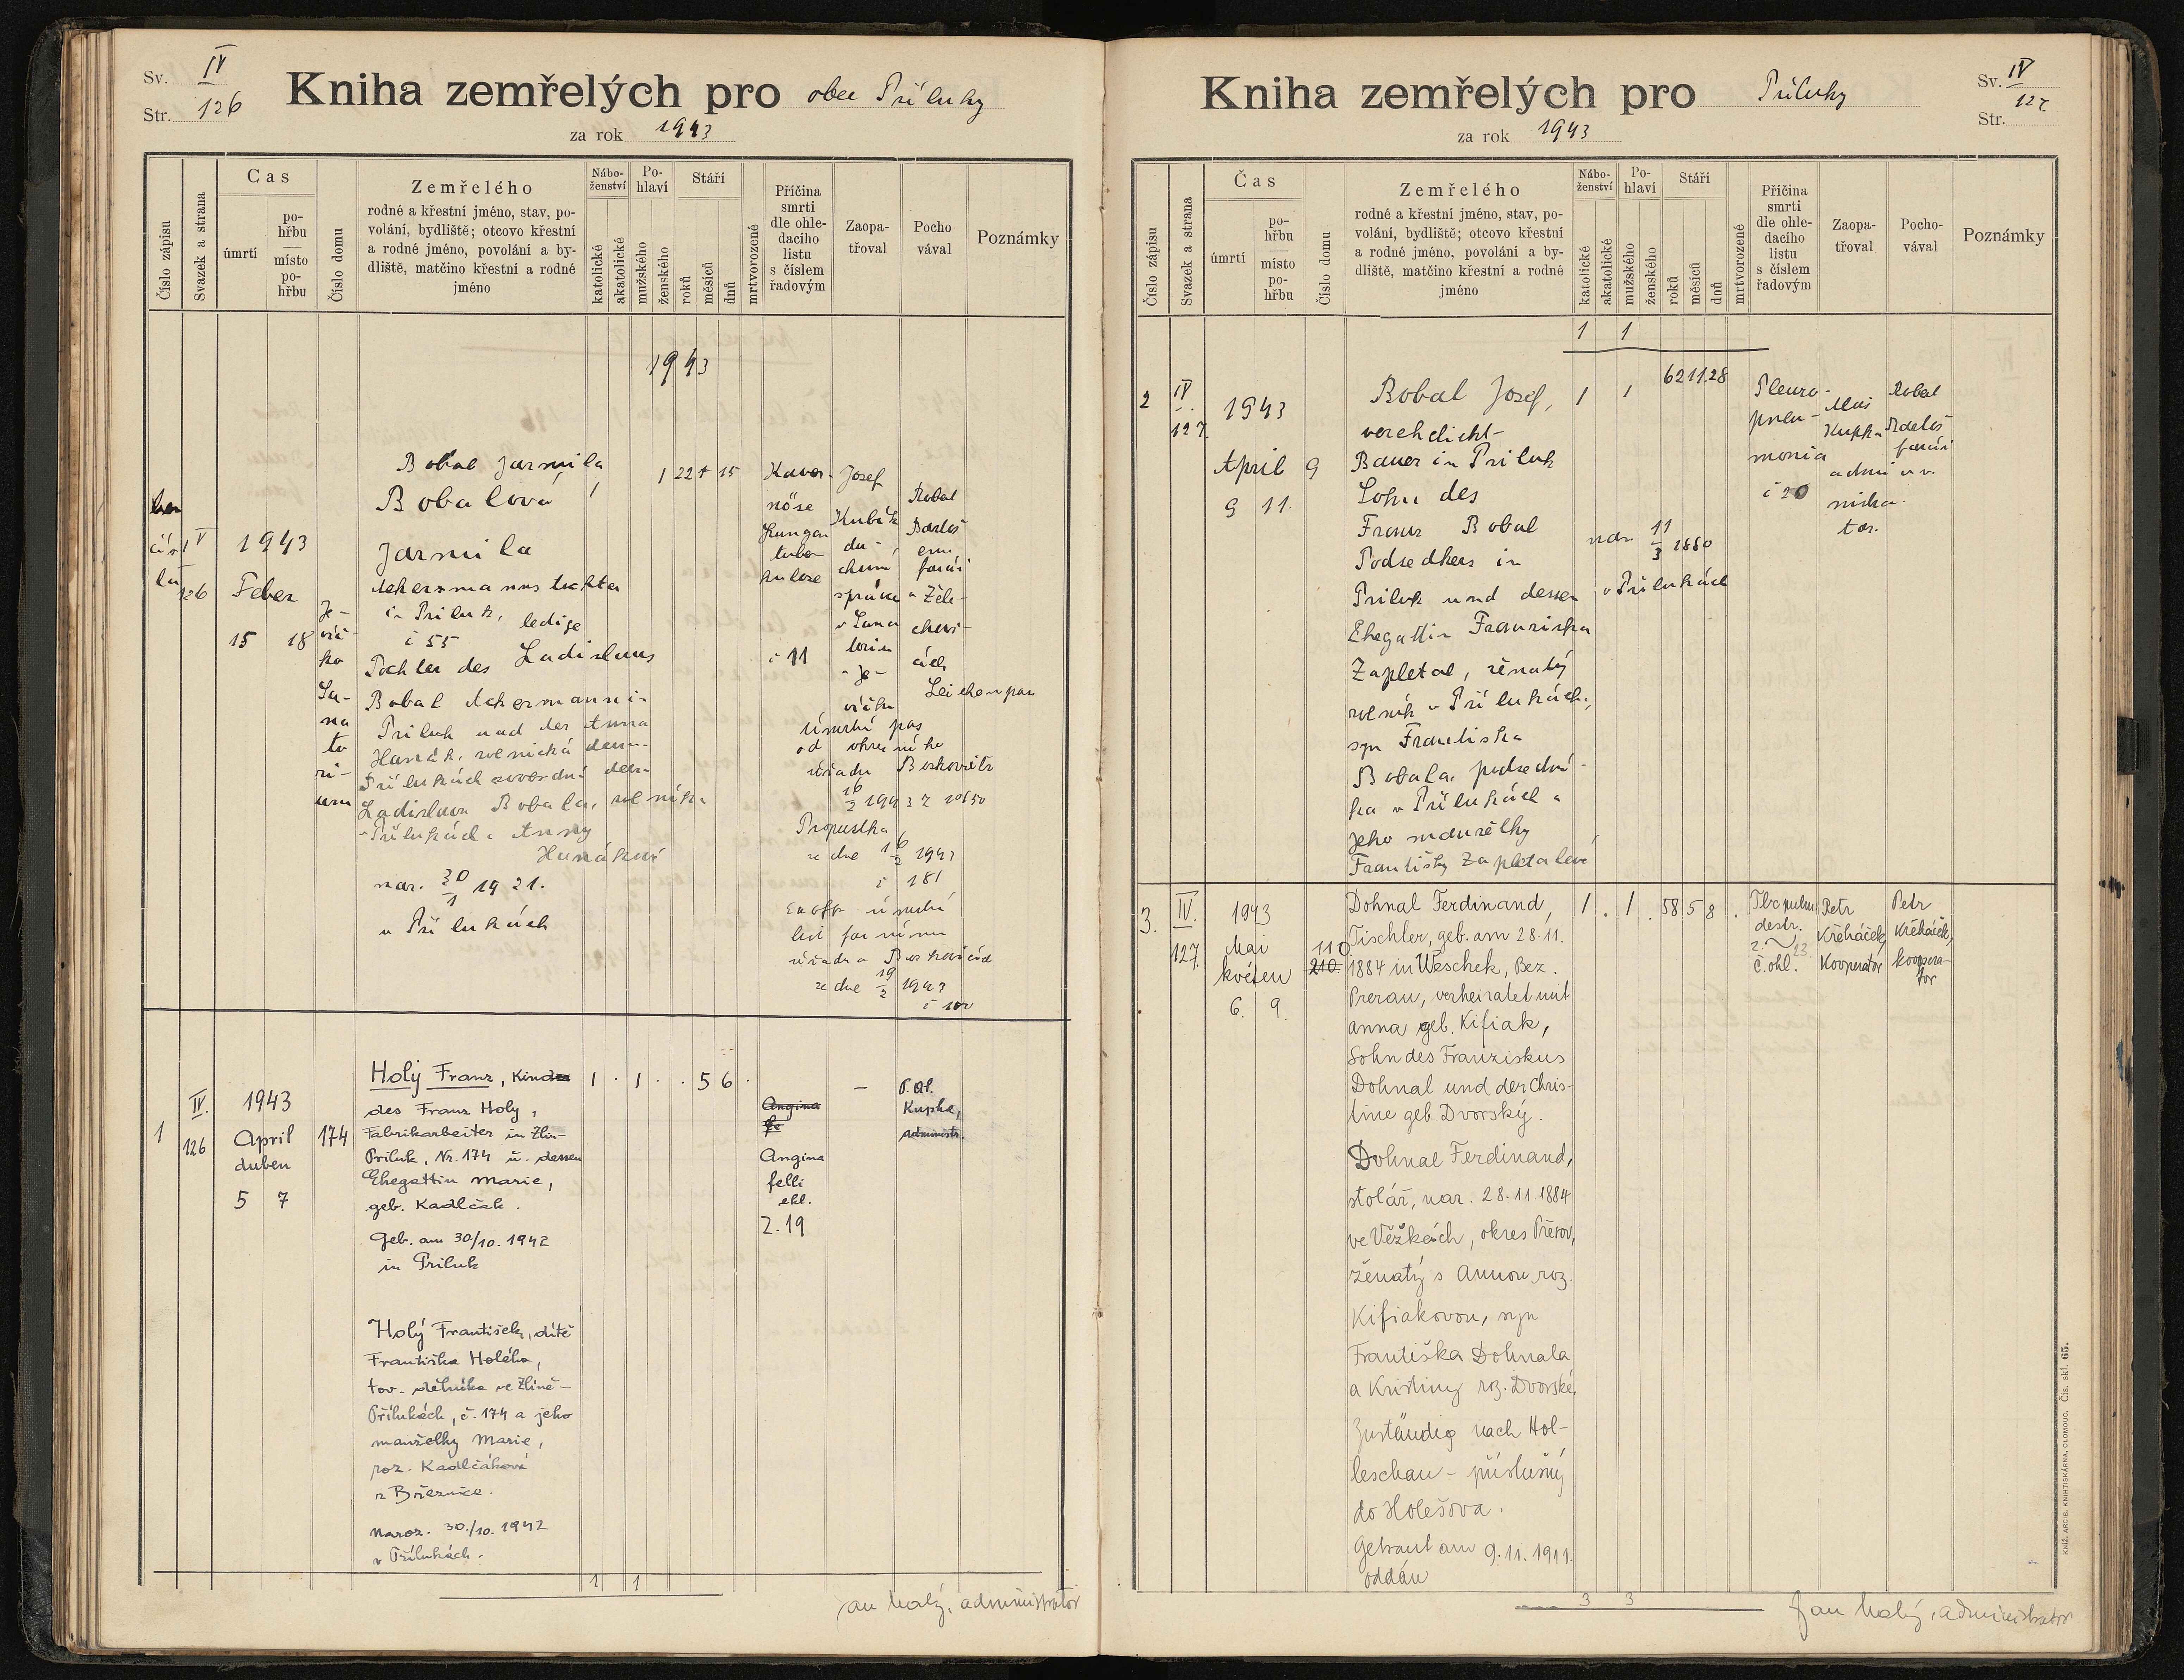 Sv. IV
Str. 126
Kniha zemřelých pro obec Příluky
za rok 1943
Číslo zápisu
Svazek a strana
Čas
úmrtí
po-
hřbu
místo
po-
hřbu
Číslo domu
Zemřelého
rodné a křestní jméno, stav, po-
volání, bydliště; otcovo křestní
a rodné jméno, povolání a by-
dliště, matčino křestní a rodné
jméno
Nábo-
ženství
katolické
akatolické
Po-
hlaví
mužského
ženského
Stáří
roků
měsíců
dnů
mrtvorozené
Příčina
smrti
dle ohle-
dacího
listu
s číslem
řadovým
Zaopa-
třoval
Pocho
vával
Poznámky
1943
bez
čís
la
IV
126
1943
Feber
15 18
Je-
víč-
ko
Sa-
na
to
ri-
um
Bobal Jarmila
Bobalová
Jarmila
Ackersmanns tochter
in Priluk, ledige
č 55
Tochter des Ladislaus
Bobal Ackermann in
Priluk und der Anna
Hanák, rolnická dcera
Přílukách svobodná dcera
Ladislava Bobala, rolníka
v Přílukách a Anny
Hanákové
nar. 20/1 1921.
v Přílukách
1
1 22 + 15
Kaver-
nöse
Lungen
tuber
kulose
č 11
Josef
Kubík
du-
chovní
správce
v Sana
toriu
v Je-
víčku
Robal
Bartoš
em.
farář
v Žele-
chovi-
cích
Leichenpass
Úmrtní pas
od okresního
úřadu Boskovitz
16/2 1943 Z 10650
Propustka
ze dne 16/2 1943
č 181
Ex offo úmrtní
list farního
úřadu v Boskovicích
ze dne 19/2 1943
č 100
1
IV.
126
1943
April
duben
5 7
174
Holý Franz, Kind
des Franz Holy,
Fabrikarbeiter in Zlin-
Priluk, Nr. 174 u. dessen
Ehegattin Marie,
geb. Kadlčak.
Geb. am 30/10. 1942
in Priluk
Holý František, dítě
Františka Holého,
tov. dělníka ve Zlíně-
Přílukách, č. 174 a jeho
manželky Marie,
roz. Kadlčákové
z Březnice.
Naroz. 30./10. 1942
v Přílukách.
1 . 1 . . 5 6 .
Angina
Angina
felli
ohl.
Z. 19
—
P. Al.
Kupka,
administr.
1 1
Jan Malý, administrátor
Kniha zemřelých pro Příluky
za rok 1943
Sv. IV
Str. 127.
Číslo zápisu
Svazek a strana
Čas
úmrtí
po-
hřbu
místo
po-
hřbu
Číslo domu
Zemřelého
rodné a křestní jméno, stav, po-
volání, bydliště; otcovo křestní
a rodné jméno, povolání a by-
dliště, matčino křestní a rodné
jméno
Nábo-
ženství
katolické
akatolické
Po-
hlaví
mužského
ženského
Stáří
roků
měsíců
dnů
mrtvorozené
Příčina
smrti
dle ohle-
dacího
listu
s číslem
řadovým
Zaopa-
třoval
Pocho-
vával
Poznámky
1 1
2
IV
127.
1943
April
9 11.
9
Bobal Josef,
verehelicht-
Bauer in Priluk
Sohn des
Franz Bobal
Podsedkers in
Priluk und dessen
Ehegattin Franziska
Zapletal, ženatý
rolník v Přílukách,
syn Františka
Bobala, podsední-
ka v Přílukách a
jeho manželky
Františky Zapletalové
1 1
62 11. 28
nar. 11/3 1880
v Přílukách
Pleuro-
pneu-
monia
č 20
Alois
Kupka
admi
nistra-
tor.
Robal
Bartoš
farář
v v.
3.
IV.
127.
1943
Mai
květen
6. 9.
110
210.
Dohnal Ferdinand,
Tischler, geb. am 28. 11.
1884 in Weschek, Bez.
Prerau, verheiratet mit
Anna geb. Kifiak,
Sohn des Franziskus
Dohnal und der Chris-
tine geb. Dvorský.
Dohnal Ferdinand,
stolář, nar. 28. 11. 1884
ve Věžkách, okres Přerov,
ženatý s Annou roz.
Kifiakovou, syn
Františka Dohnala
a Kristiny roz. Dvorské,
Zuständig nach Hol-
leschau - příslušný
do Holešova.
Getraut am 9. 11. 1911.
oddán
1 . 1 . 58 5 8 .
Tbc pulm
destr.
č. ohl. 23.
Petr
Křeháček,
Kooperator
Petr
Křeháček,
koopera-
tor
3 3
Jan Malý, administrátor
KNIŽ. ARCIB. KNIHTISKÁRNA, OLOMOUC. Čís. skl. 65.